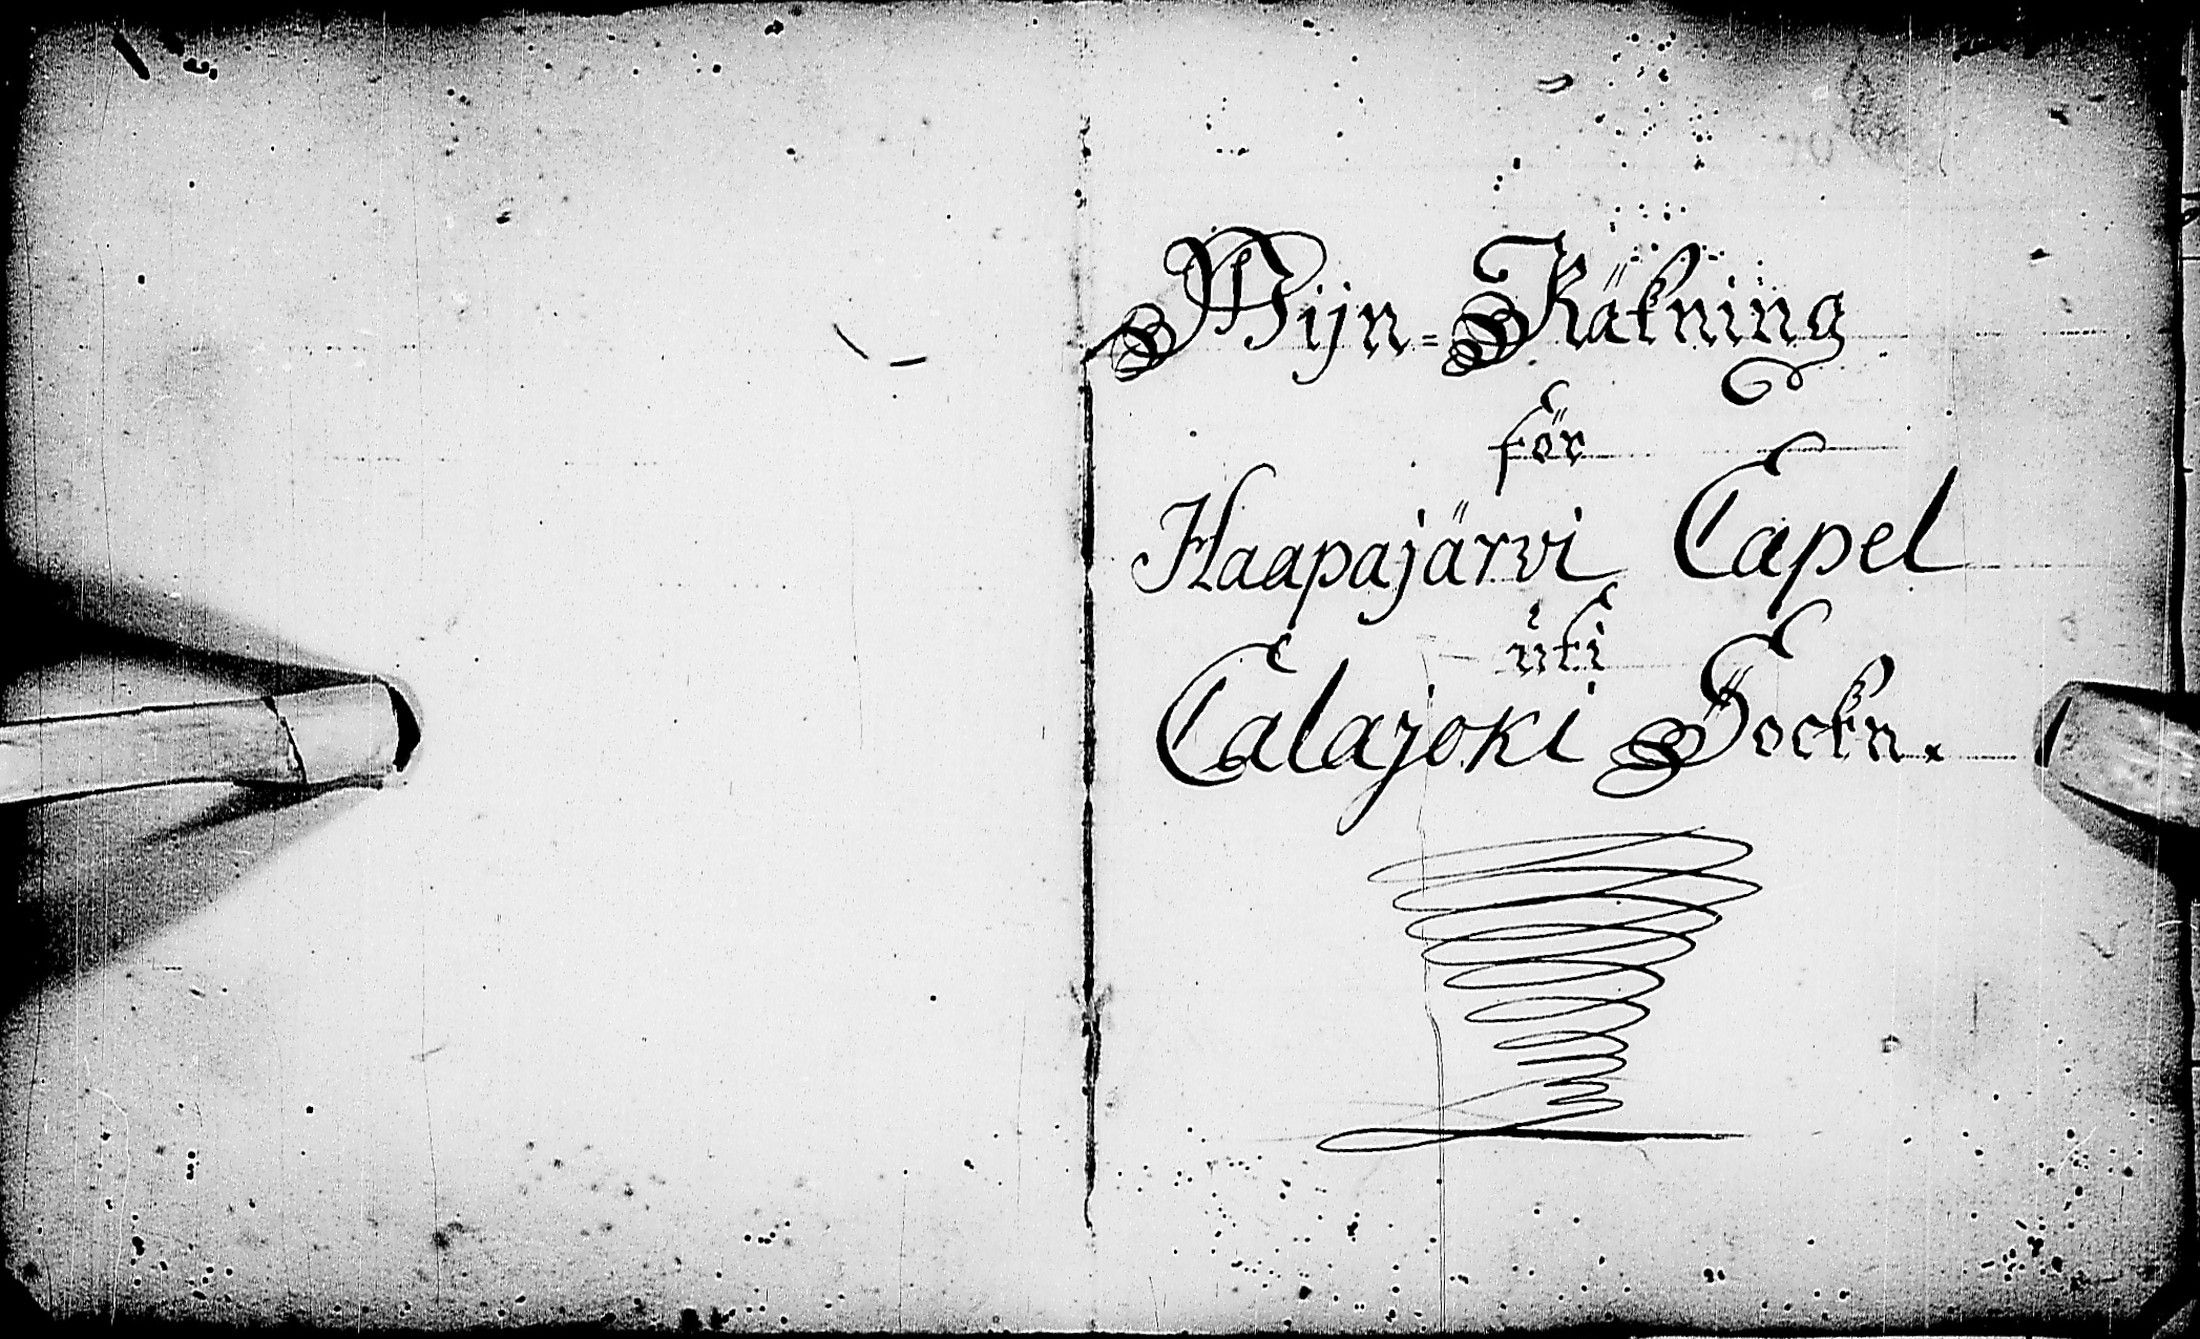 Wijn-Räkning
för
Haapajärvi Capel
uti
Calajoki Sockn.